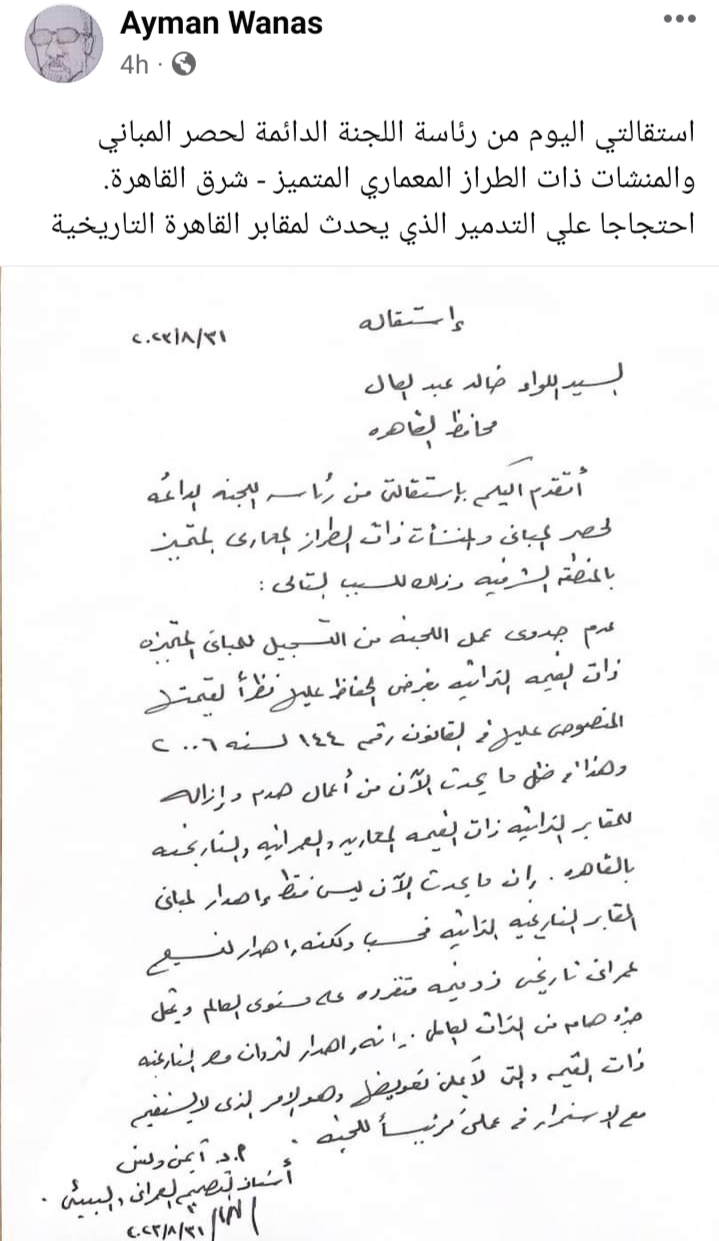 Ayman Wanas
4h
استقالتي اليوم من رئاسة اللجنة الدائمة لحصر المباني
والمنشات ذات الطراز المعماري المتميز - شرق القاهرة.
احتجاجا علي التدمير الذي يحدث لمقابر القاهرة التاريخية
إستقاله
٢٠٢٣/٨/٣١
السيد اللواء خالد عبد العال
محافظ القاهره
أتقدم اليكم بإستقالتى من رئاسه اللجنه الدائمه
لحصر المبانى والمنشأت ذات الطراز المعمارى المتميز
بالمنطقه الشرقيه وذلك للسبب التالى :
عدم جدوى عمل اللجنه من التسجيل للمبانى المتميزه
ذات القيمه التراثيه بغرض الحفاظ عليها نظراً لقيمتها
المنصوص عليها فى القانون رقم ١٤٤ لسنه ٢٠٠٦
وهذا فى ظل ما يحدث الآن من أعمال هدم وإزاله
للمقابر التراثيه ذات القيمه المعماريه والعمرانيه والتاريخيه
بالقاهره . إن ما يحدث الآن ليس فقط إهدار لمبانى
المقابر التاريخيه التراثيه فحسب ولكنه إهدار لنسيج
عمرانى تاريخى ذو قيمه متفرده على مستوى العالم ويمثل
جزء هام من التراث العالمى . إنه إهدار لثروات مصر التاريخيه
ذات القيمه والتى لا يمكن تعويضها وهو الامر الذى لا يستقيم
مع الاستمرار فى عملى رئيساً للجنه .
أ.د. أيمن ونس
أستاذ التصميم العمرانى والبيئى .
٢٠٢٣/٨/٣١